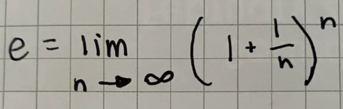 e = lim n → ∞ (1 + 1/n)^n